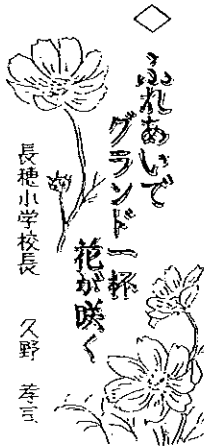 ◇
ふれあいで
グランド一杯
花が咲く
長穂小学校長 久野 孝司